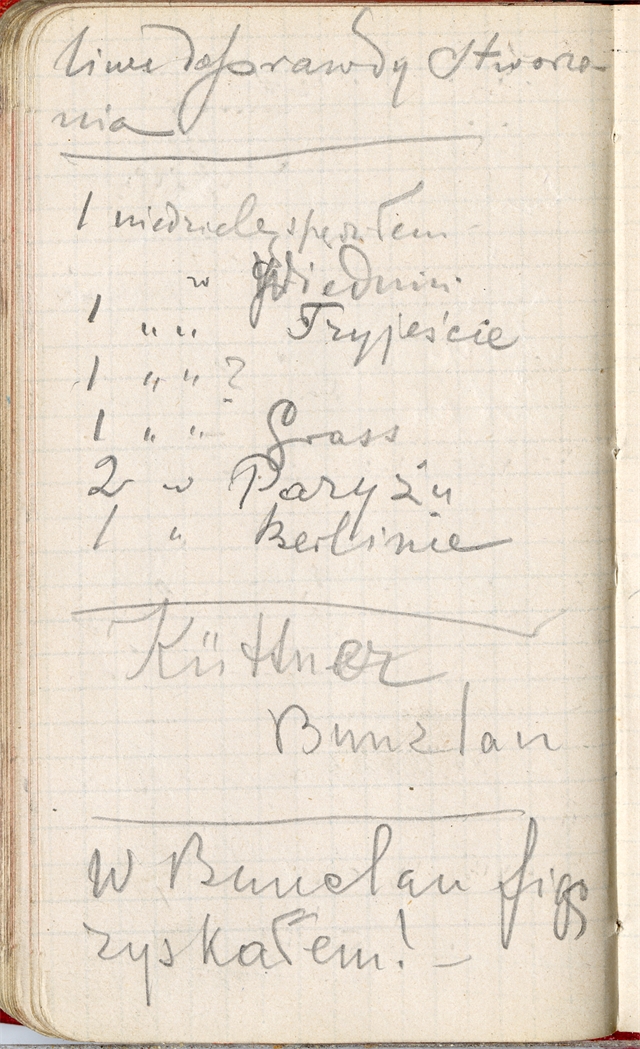 liwe doprawdy stworze-
nia
1 niedzielę spędziłem
w Wiedniu
1 " " Tryjeście
1 " " ?
1 " " Grass
2 w Paryżu
1 " Berlinie
Küttner
Bunzlau
W Bunclau figę
zyskałem! –